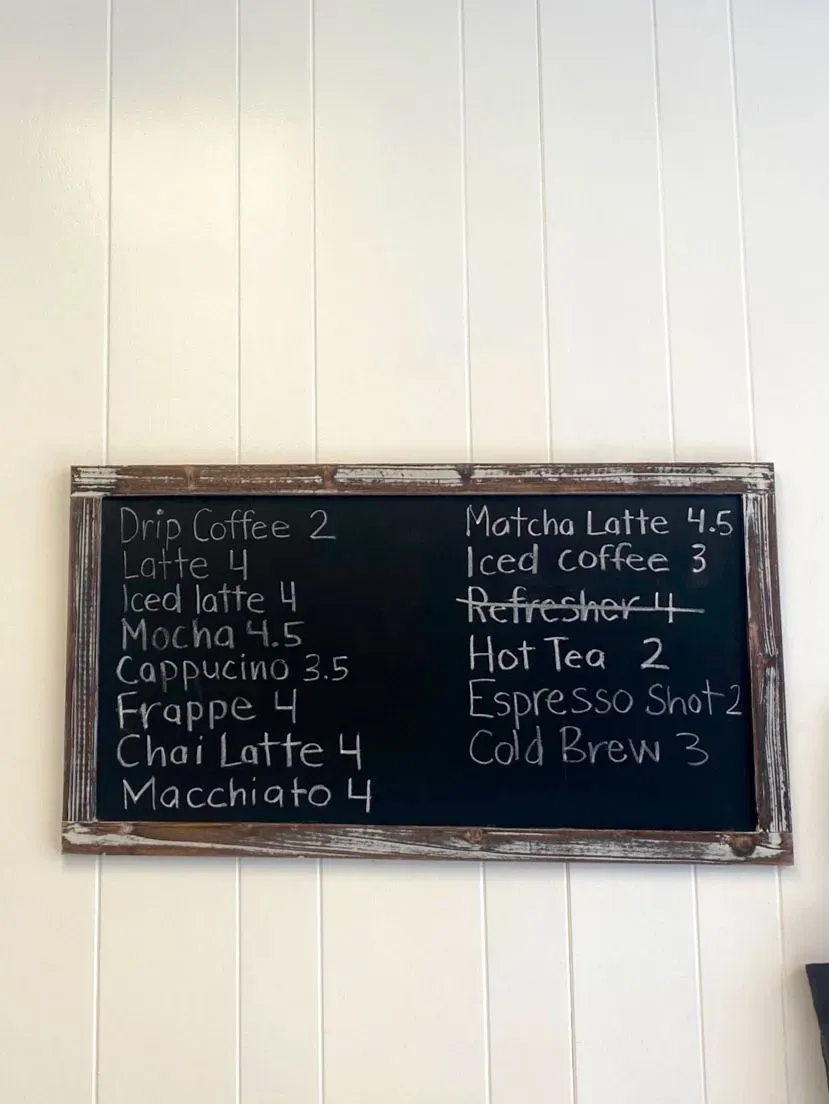 Drip Coffee 2
Latte 4
Iced latte 4
Mocha 4.5
Cappucino 3.5
Frappe 4
Chai Latte 4
Macchiato 4
Matcha Latte 4.5
Iced coffee 3
Refresher 4
Hot Tea 2
Espresso Shot 2
Cold Brew 3